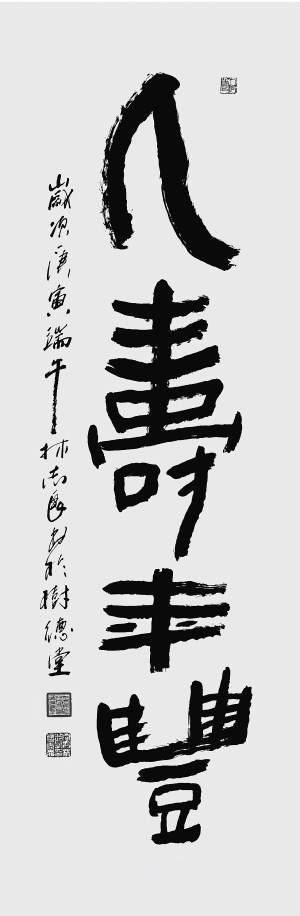 人壽年豐
歲次庚寅端午林志良書於樹德堂